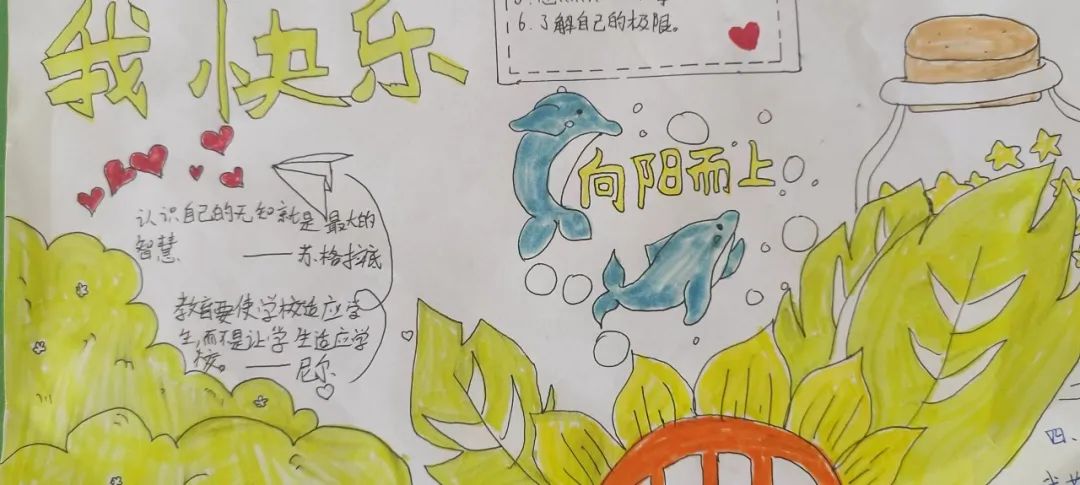 我快乐
6.了解自己的极限。
向阳而上
认识自己的无知就是最大的
智慧
——苏格拉底
教育要使学校适应学
生,而不是让学生适应学
校。——尼尔
四、